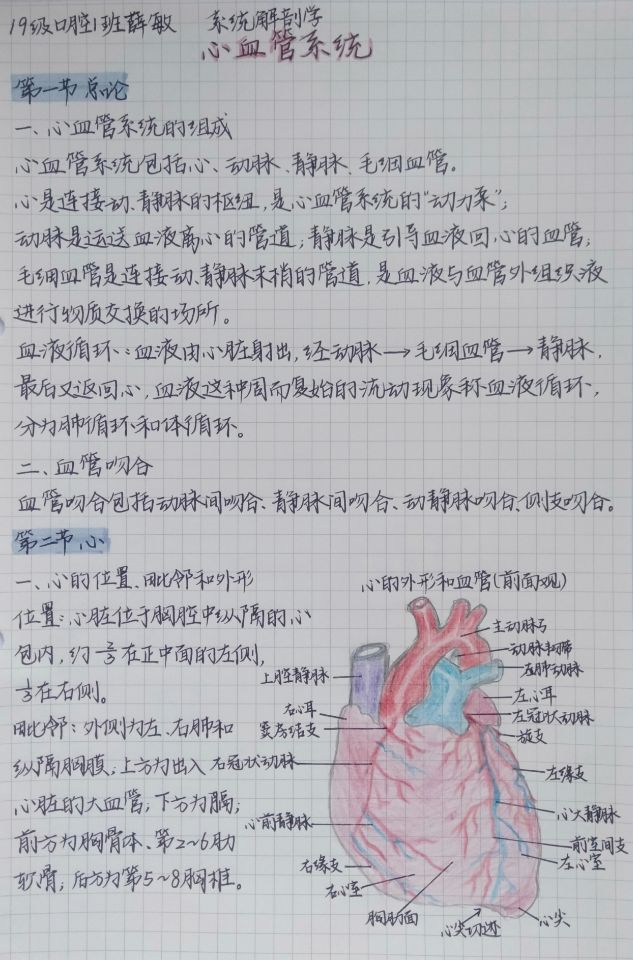 19级口腔1班薛敏 系统解剖学
心血管系统
第一节 总论
一、心血管系统的组成
心血管系统包括心、动脉、静脉、毛细血管。
心是连接动、静脉的枢纽,是心血管系统的"动力泵";
动脉是运送血液离心的管道;静脉是引导血液回心的血管;
毛细血管是连接动、静脉末梢的管道,是血液与血管外组织液
进行物质交换的场所。
血液循环:血液由心脏射出,经动脉→毛细血管→静脉,
最后又返回心,血液这种周而复始的流动现象称血液循环,
分为肺循环和体循环。
二、血管吻合
血管吻合包括动脉间吻合、静脉间吻合、动静脉吻合、侧支吻合。
第二节 心
一、心的位置、毗邻和外形
位置:心脏位于胸腔中纵隔的心
包内,约⅔在正中面的左侧,
⅓在右侧。
毗邻:外侧为左、右肺和
纵隔胸膜;上方为出入
心脏的大血管;下方为膈;
前方为胸骨体、第2~6肋
软骨;后方为第5~8胸椎。
心的外形和血管(前面观)
主动脉弓
动脉韧带
左肺动脉
上腔静脉
左心耳
右心耳
左冠状动脉
窦房结支
旋支
右冠状动脉
左缘支
心大静脉
心前静脉
前室间支
左心室
右缘支
右心室
胸肋面
心尖切迹
心尖